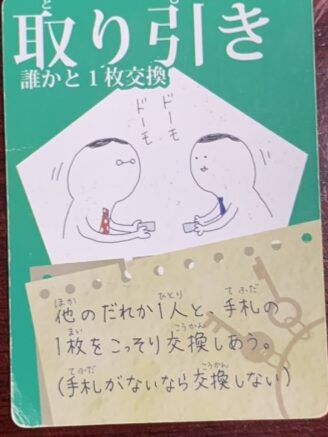 取り引き
誰かと1枚交換
ドーモ
ドーモ
他のだれか1人と、手札の
1枚をこっそり交換しあう。
(手札がないなら交換しない)